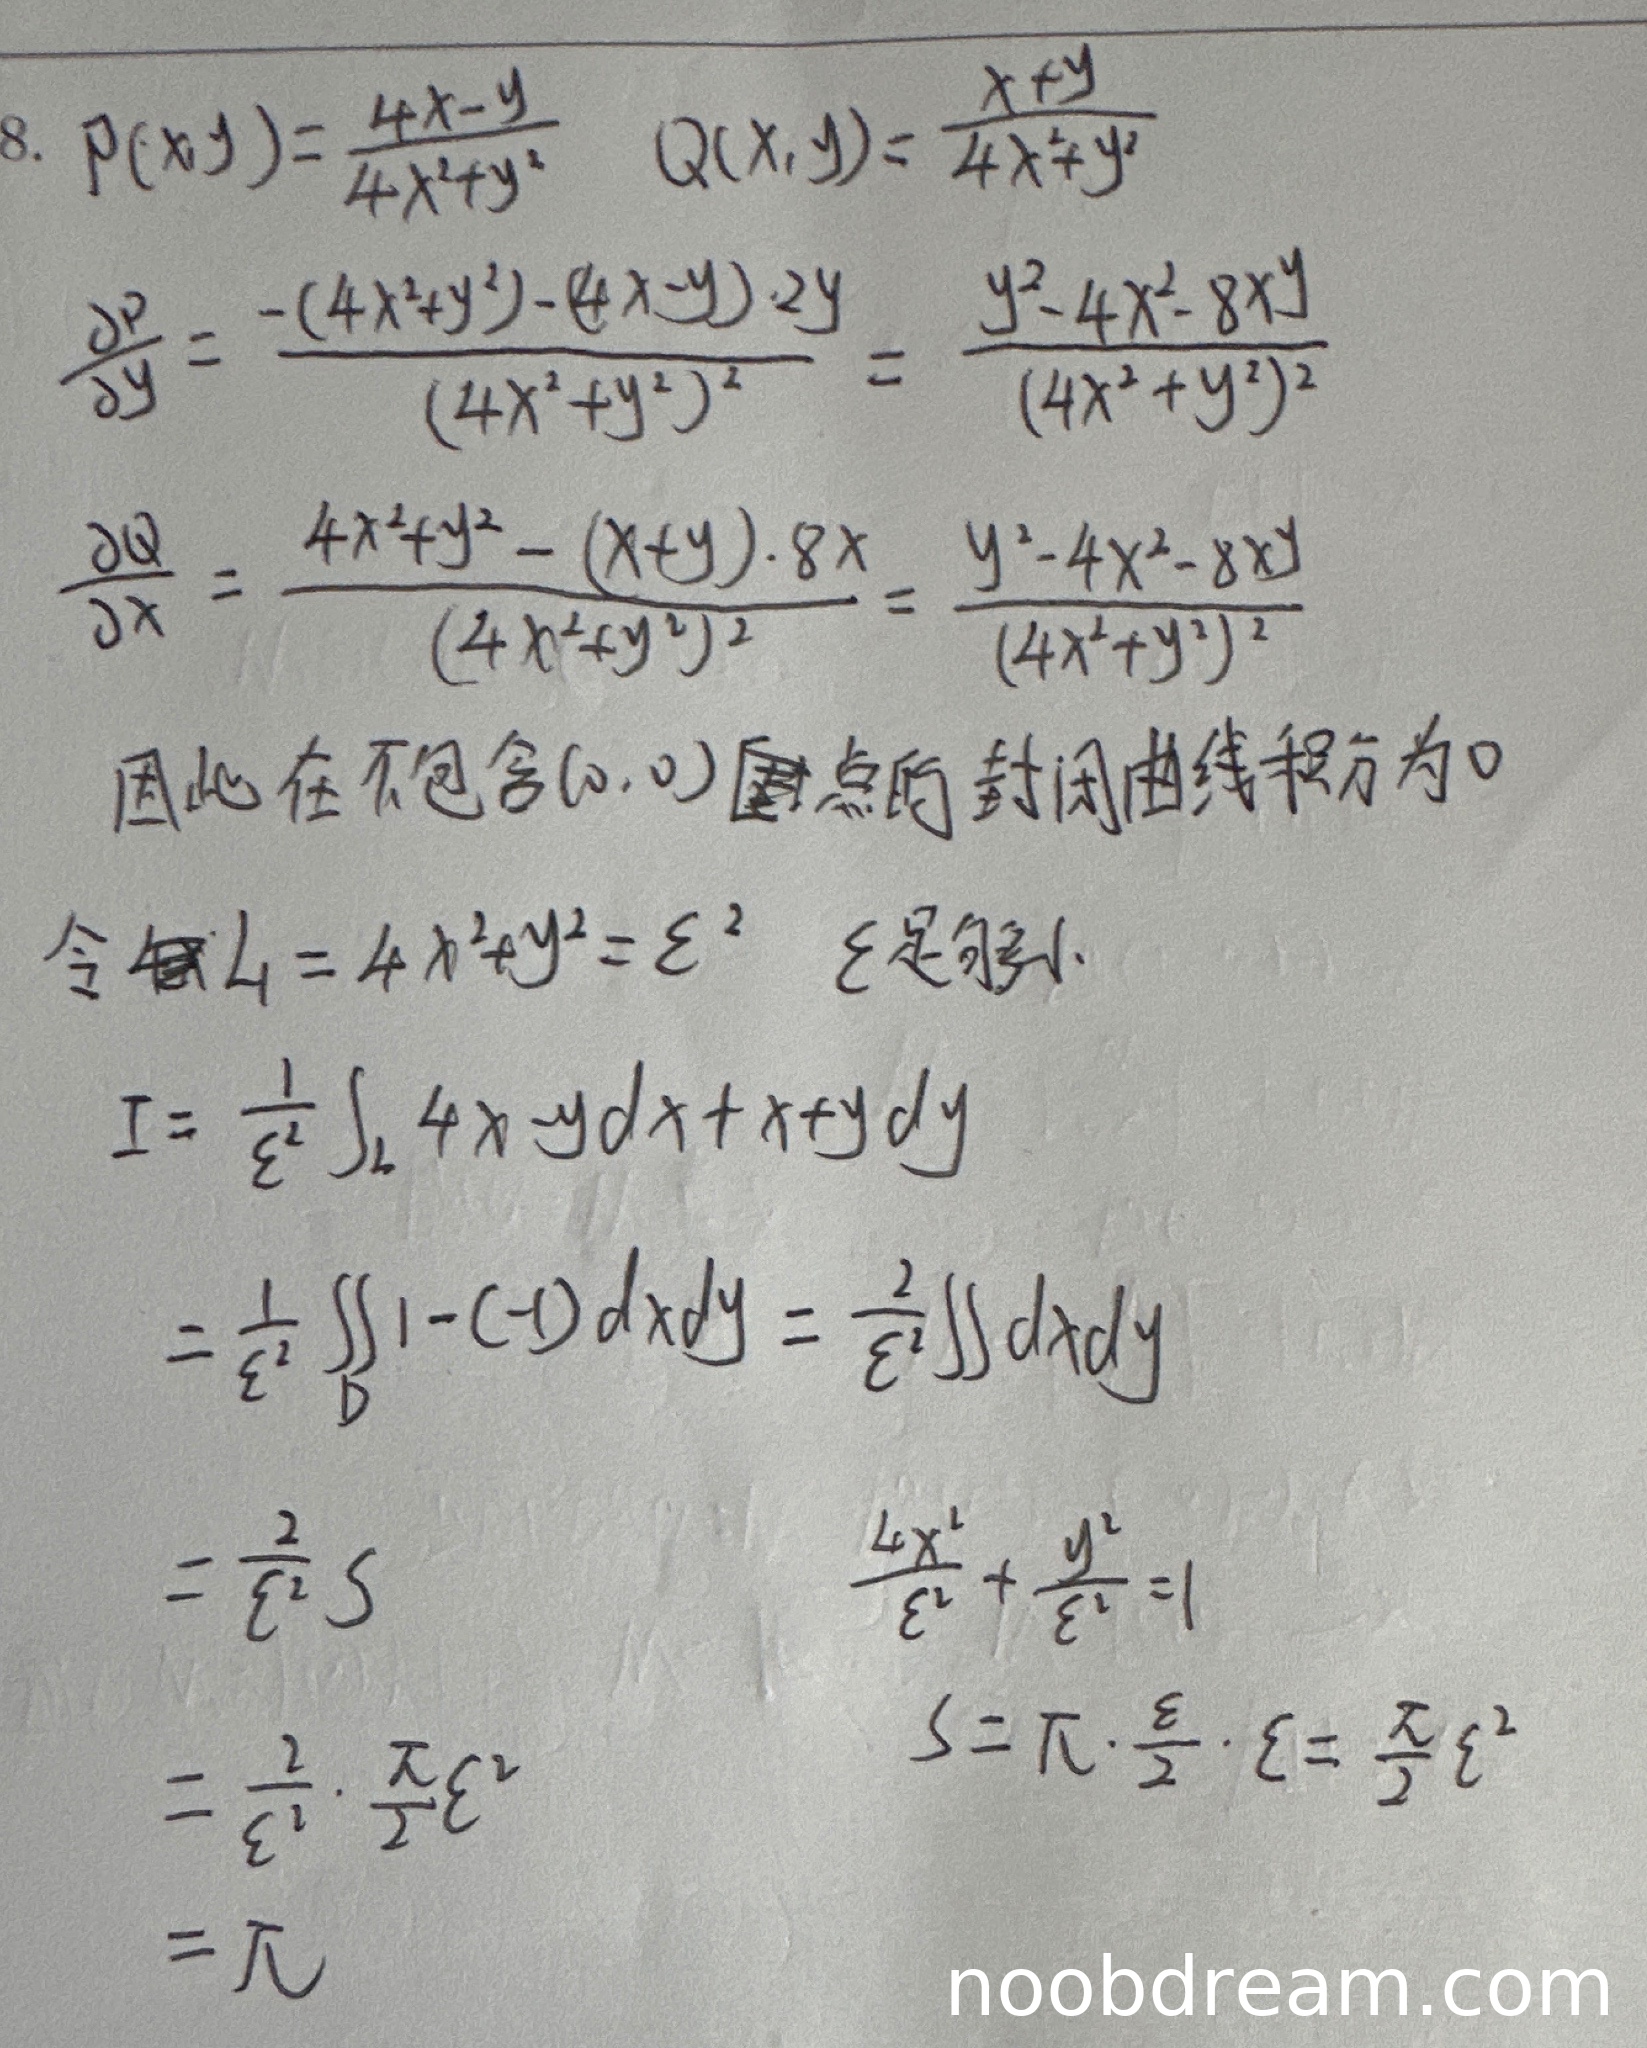 8. P(x,y) = \frac{4x-y}{4x²+y²} Q(x,y) = \frac{x+y}{4x²+y²}
\frac{∂P}{∂y} = \frac{-(4x²+y²)-(4x-y)·2y}{(4x²+y²)²} = \frac{y²-4x²-8xy}{(4x²+y²)²}
\frac{∂Q}{∂x} = \frac{4x²+y²-(x+y)·8x}{(4x²+y²)²} = \frac{y²-4x²-8xy}{(4x²+y²)²}
因此在不包含(0,0)点的封闭曲线积分为0
令 L₁ = 4x²+y² = ε² ε足够小
I = \frac{1}{ε²} ∫_L 4x-ydx + x+ydy
= \frac{1}{ε²} ∬_D 1-(-1)dxdy = \frac{2}{ε²} ∬dxdy
= \frac{2}{ε²} S \frac{4x²}{ε²} + \frac{y²}{ε²} = 1
S = π·\frac{ε}{2}·ε = \frac{π}{2}ε²
= \frac{2}{ε²}·\frac{π}{2}ε²
= π
noobdream.com